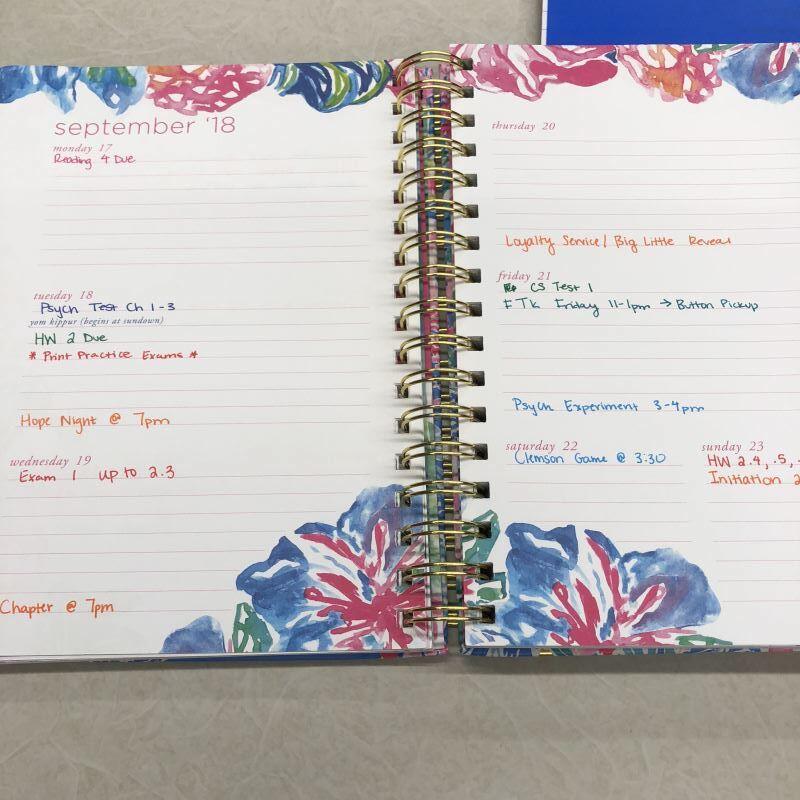 september '18
monday 17
Reading 4 Due
tuesday 18
Psych Test Ch 1-3
yom kippur (begins at sundown)
HW 2 Due
* Print Practice Exams *
Hope Night @ 7pm
wednesday 19
Exam 1 up to 2.3
Chapter @ 7pm
thursday 20
Loyalty Service / Big Little Reveal
friday 21
CS Test 1
FTK Friday 11-1pm → Button Pickup
Psych Experiment 3-4pm
saturday 22
Clemson Game @ 3:30
sunday 23
HW 2.4, .5,
Initiation